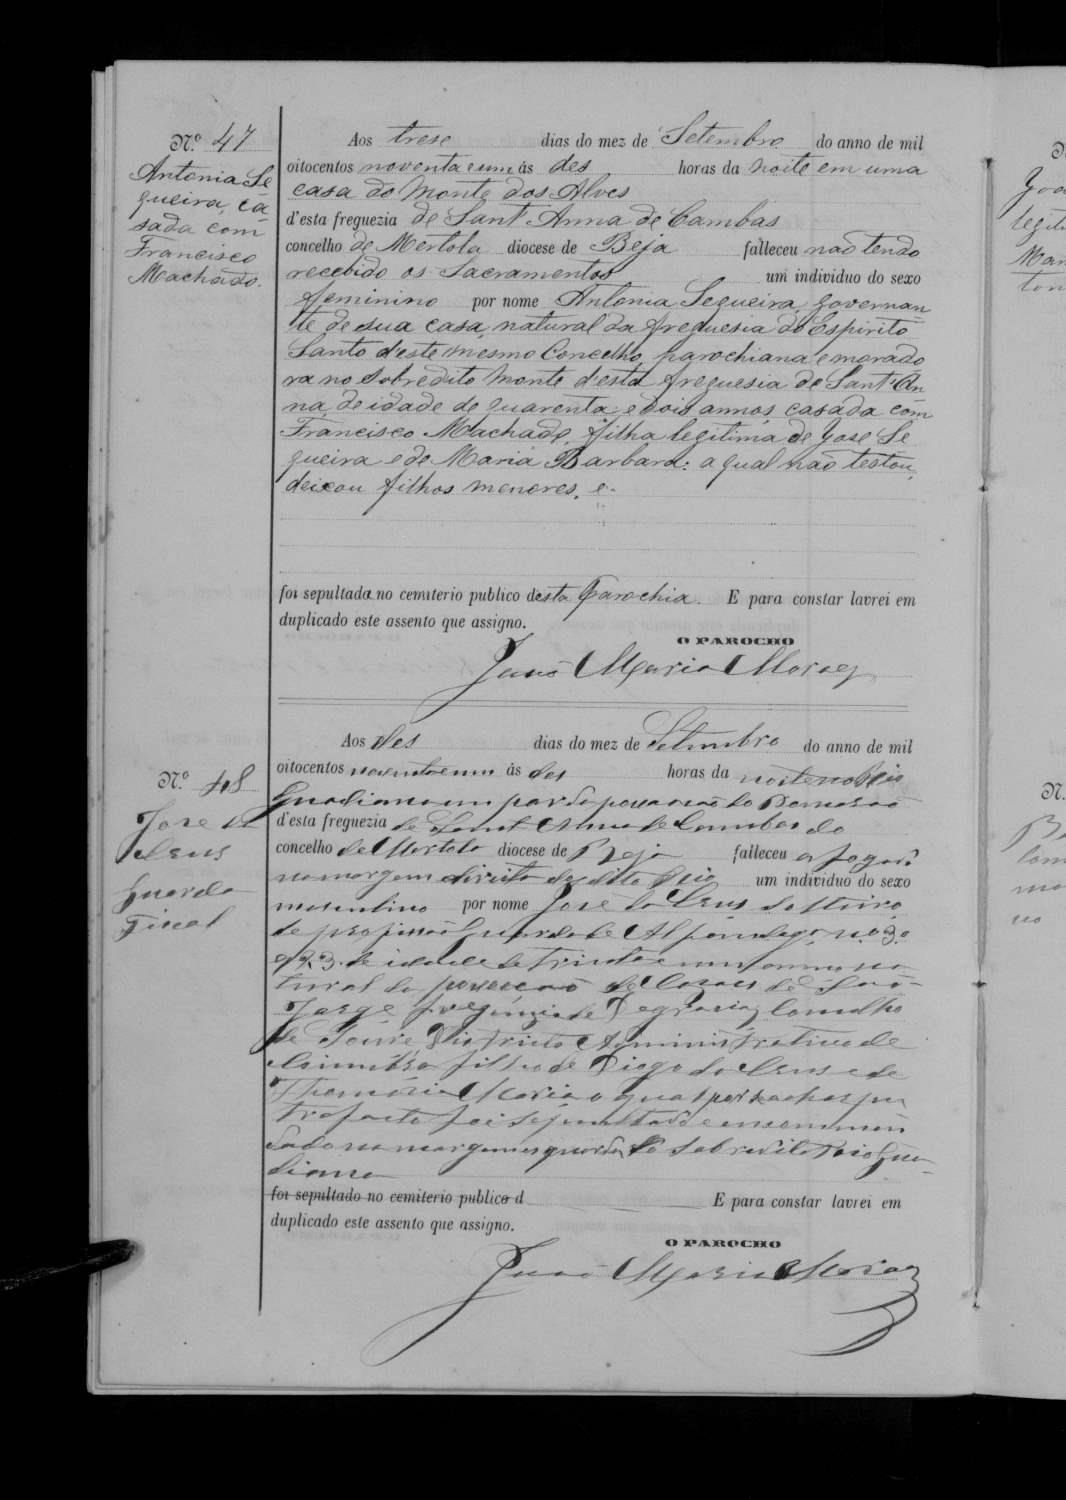 Nº 47
Antonia Se
queira, ca
sada com
Francisco
Machado.
Aos trese dias do mez de Setembro do anno de mil
oitocentos noventa e um ás des horas da noite em uma
casa do Monte dos Alves
d'esta freguezia de Sant'Anna de Cambas
concelho de Mertola diocese de Beja falleceu não tendo
recebido os Sacramentos um individuo do sexo
femenino por nome Antonia Sequeira, governan
te de sua casa, natural da freguesia do Espirito
Santo d'este mesmo Concelho, parochiana e morado
ra no sobredito Monte d'esta freguesia de Sant'An
na, de idade de quarenta e dois annos, casada com
Francisco Machado, filha legitima de Jose Se
queira e de Maria Barbara: a qual não testou,
deixou filhos menores, e
foi sepultada no cemiterio publico desta Parochia. E para constar lavrei em
duplicado este assento que assigno.
O PAROCHO
João Maria Moraes
Nº 48
Jose da
Cruz
Guarda
Fiscal
Aos des dias do mez de Setembro do anno de mil
oitocentos noventa e um ás des horas da noite no Rio
Guadiana em par da povoação do Pomarão
d'esta freguezia de Sant'Anna de Cambas do
concelho de Mertola diocese de Beja falleceu afogado
na margem direita do dito Rio um individuo do sexo
masculino por nome José da Cruz solteiro
de profissão Guarda de Alfandega nº 3º
de idade de trinta e um annos na
tural da povoação de Casaes de São
Jorge freguesia de Degracias Concelho
de Soure Districto Administrativo de
Coimbra filho de Diogo da Cruz e de
Maria o qual por se achar pu
trefacto foi sepultado e encommen
dado na margem esquerda do sobredito Rio Gua
diana
foi sepultado no cemiterio publico d E para constar lavrei em
duplicado este assento que assigno.
O PAROCHO
João Maria Moraes